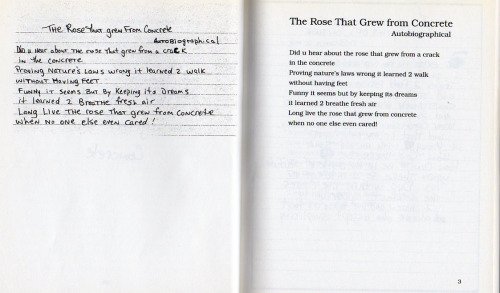 The Rose That grew From Concrete
Autobiographical
Did u Hear about The rose that grew from a crack
in the concrete
Proving Nature's Laws wrong it learned 2 walk
without Having Feet
Funny it seems But By Keeping its Dreams
it learned 2 Breathe fresh air
Long Live The rose That grew from concrete
when no one else even cared!
The Rose That Grew from Concrete
Autobiographical
Did u hear about the rose that grew from a crack
in the concrete
Proving nature's laws wrong it learned 2 walk
without having feet
Funny it seems but by keeping its dreams
it learned 2 breathe fresh air
Long live the rose that grew from concrete
when no one else even cared!
3